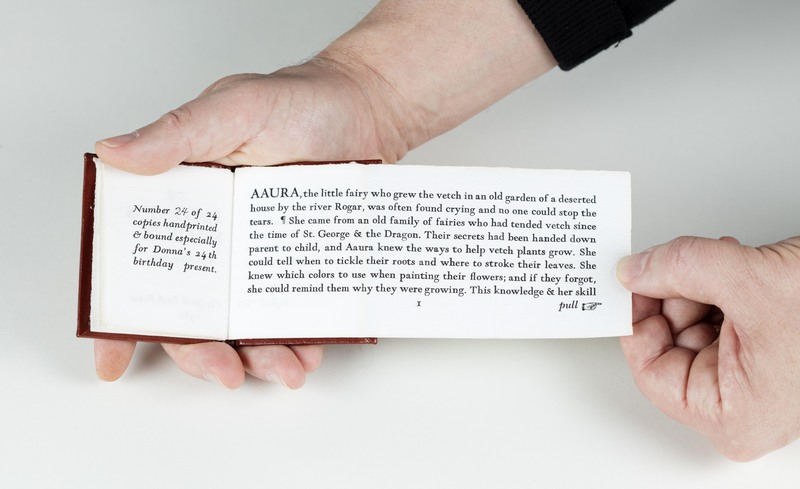 Number 24 of 24
copies handprinted
& bound especially
for Donna's 24th
birthday present.
AAURA, the little fairy who grew the vetch in an old garden of a deserted
house by the river Rogar, was often found crying and no one could stop the
tears. ¶ She came from an old family of fairies who had tended vetch since
the time of St. George & the Dragon. Their secrets had been handed down
parent to child, and Aaura knew the ways to help vetch plants grow. She
could tell when to tickle their roots and where to stroke their leaves. She
knew which colors to use when painting their flowers; and if they forgot,
she could remind them why they were growing. This knowledge & her skill
1
pull ☞